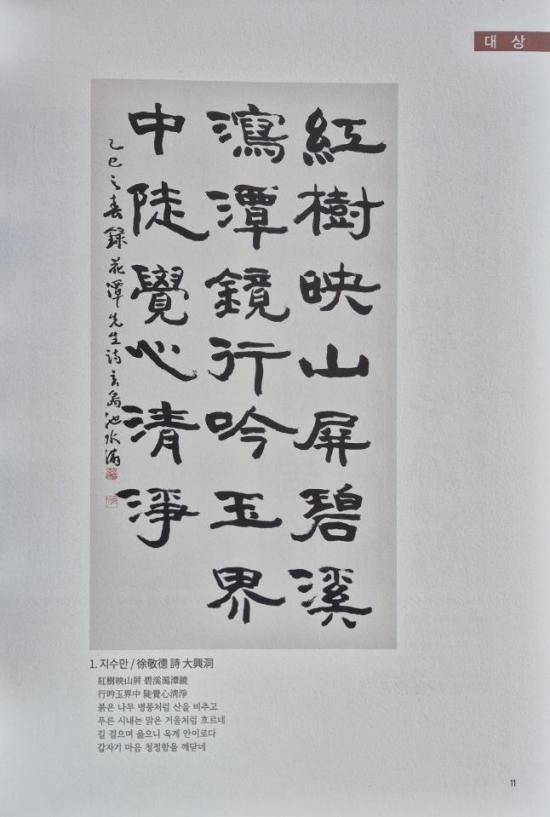 대 상
紅樹映山屛碧溪
瀉潭鏡行吟玉界
中陡覺心清淨
乙巳之春錄花潭先生詩玄島池水滿
1. 지수만 / 徐敬德 詩 大興洞
紅樹映山屛 碧溪瀉潭鏡
行吟玉界中 陡覺心淸淨
붉은 나무 병풍처럼 산을 비추고
푸른 시내는 맑은 거울처럼 흐르네
길 걸으며 읊으니 옥계 안이로다
갑자기 마음 청정함을 깨닫네
11